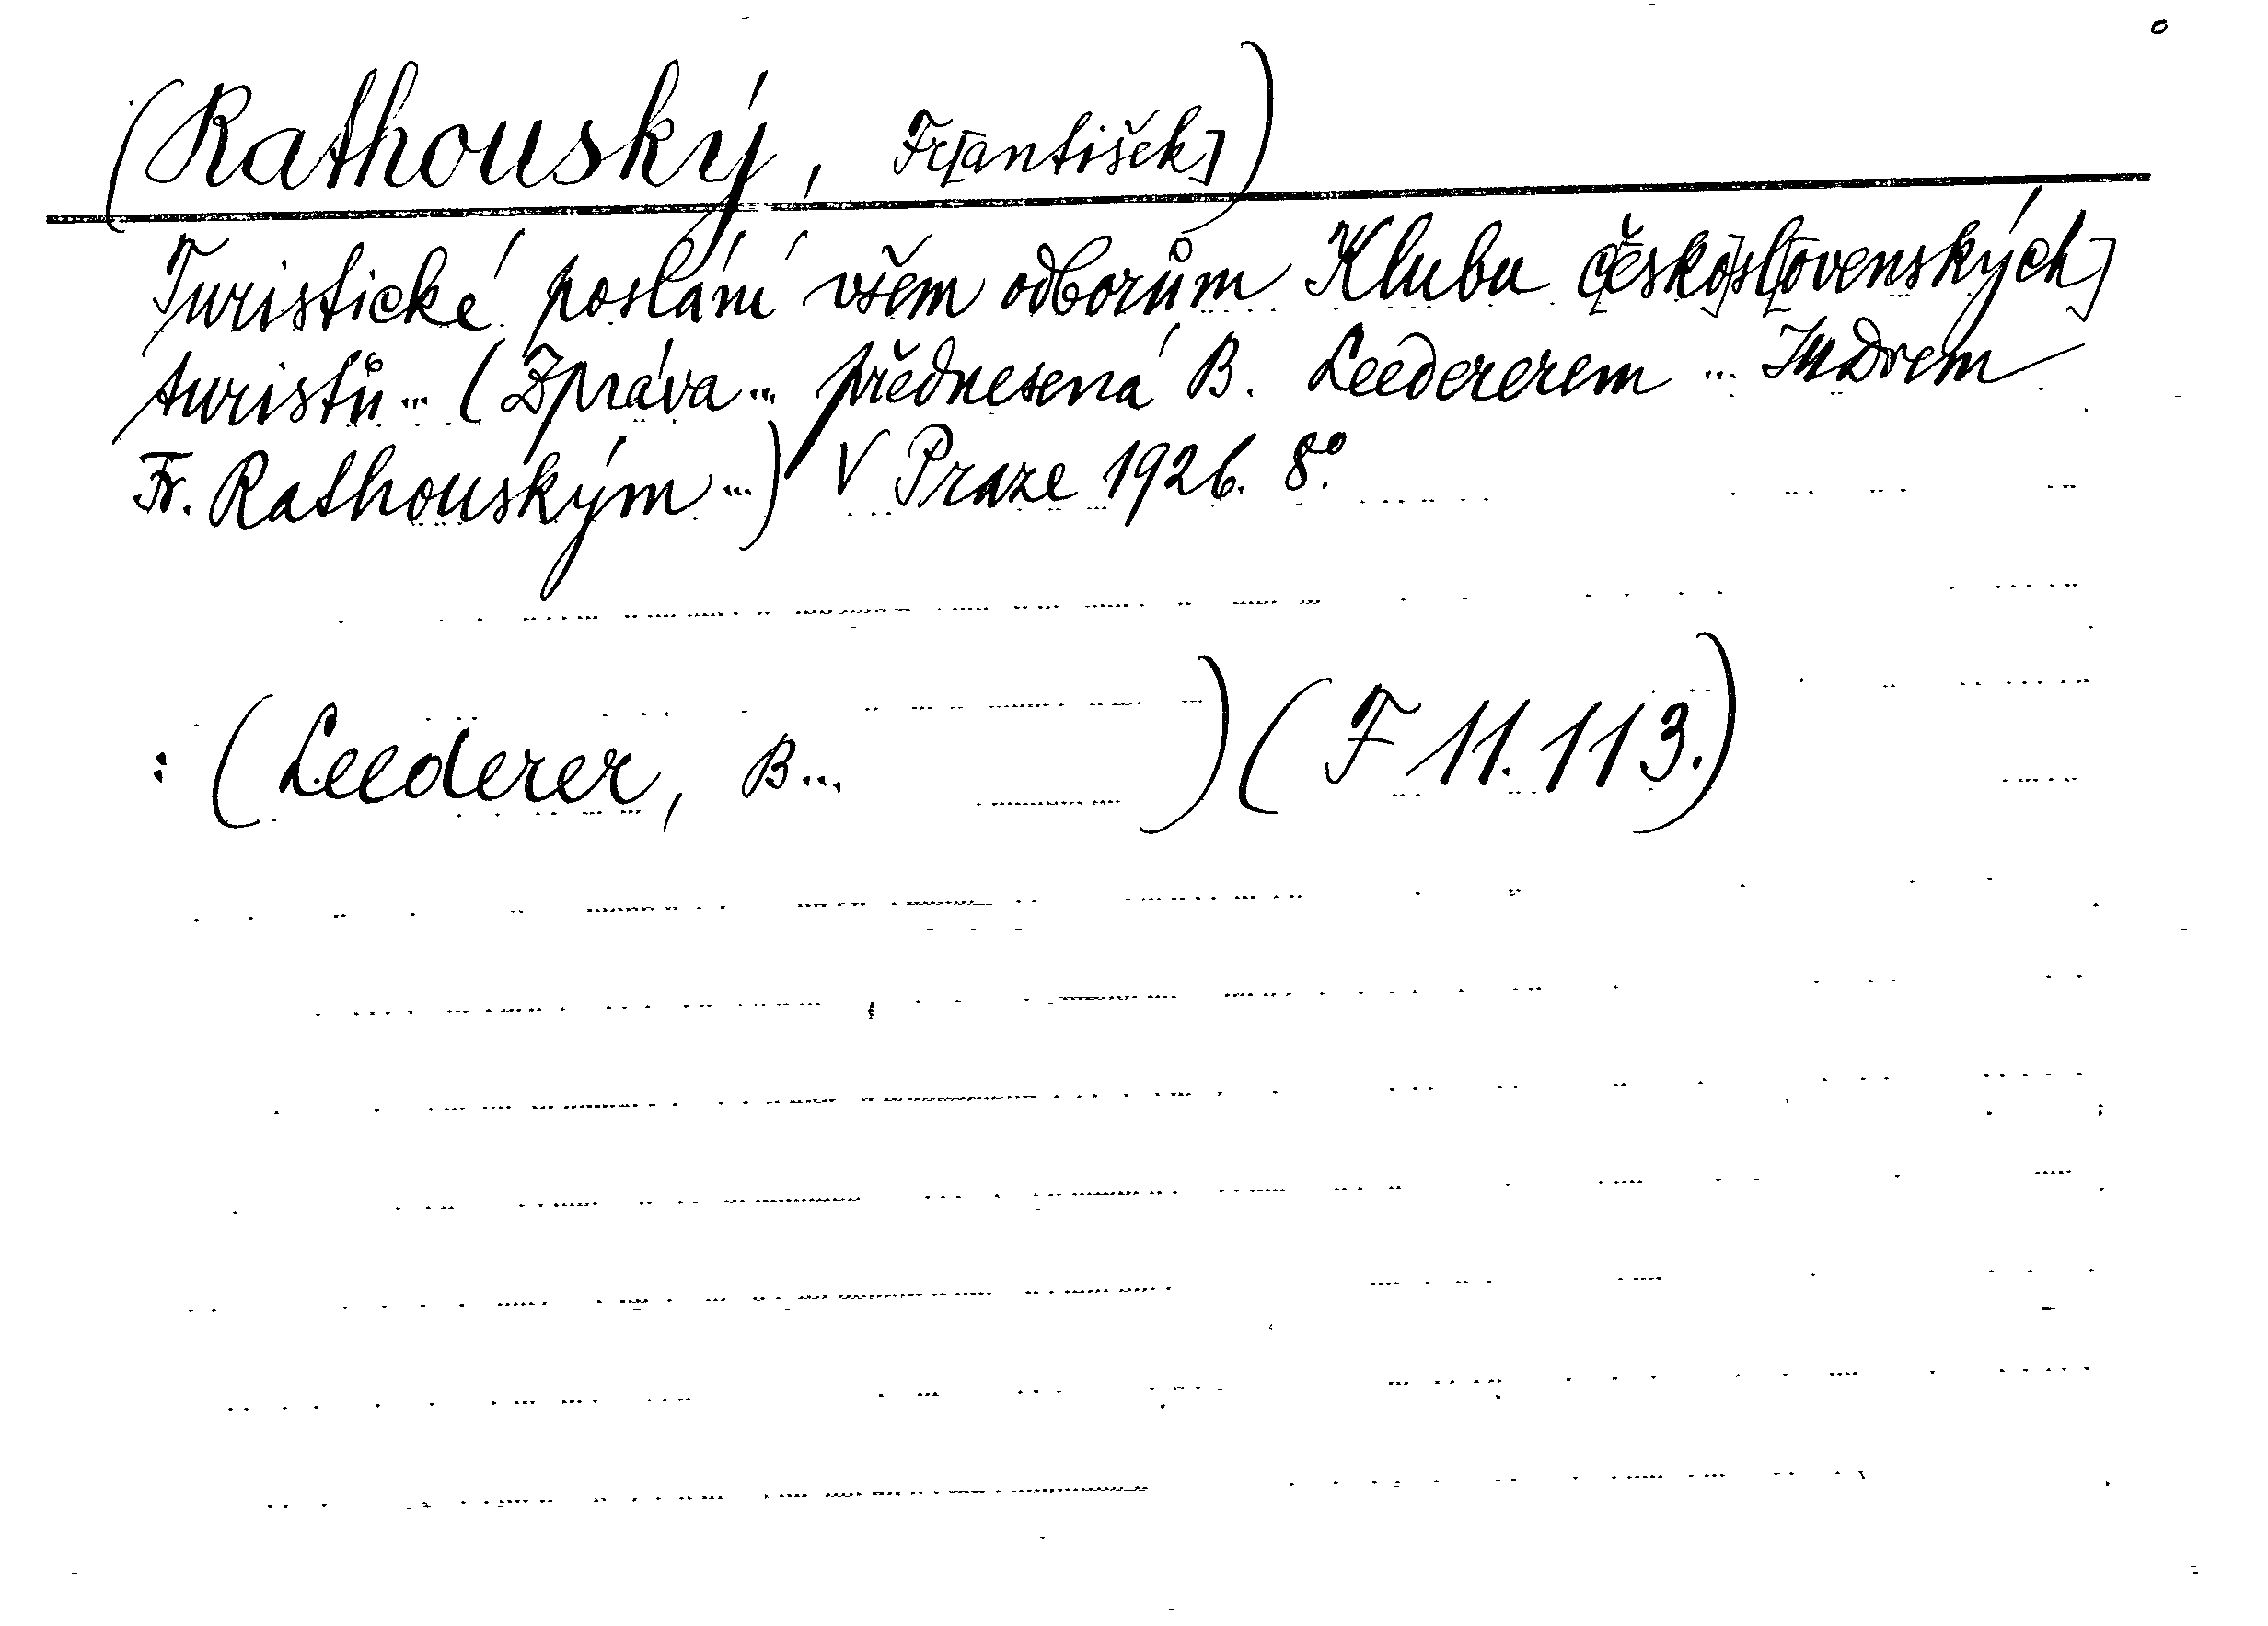 (Rathouský, Fr[antišek])
Turistické poslání všem odborům Klubu č[esko]sl[ovenských]
turistů... (Zpráva... přednesená B. Leedererem ... JUDrem
Fr. Rathouským ...) V Praze 1926. 8°.
: (Leederer, B... ) (F 11.113.)